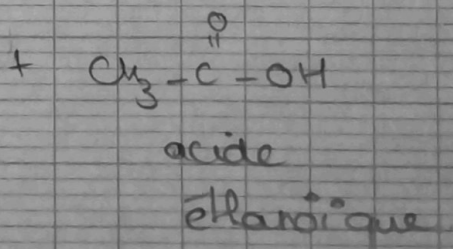 O
||
+ CH3-C-OH
acide
éthanoïque